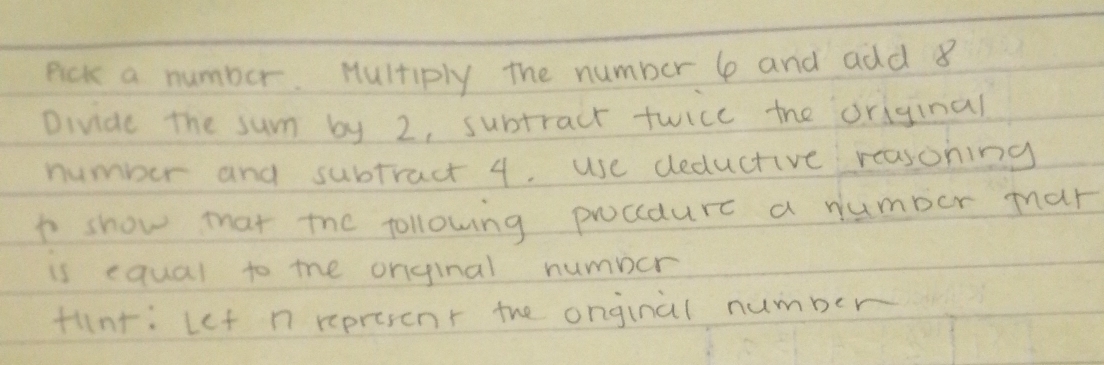 Pick a number. Multiply the number 6 and add 8
Divide the sum by 2, subtract twice the original
number and subtract 4. Use deductive reasoning
to show that the following procedure a number that
is equal to the original number
Hint: Let n represent the original number